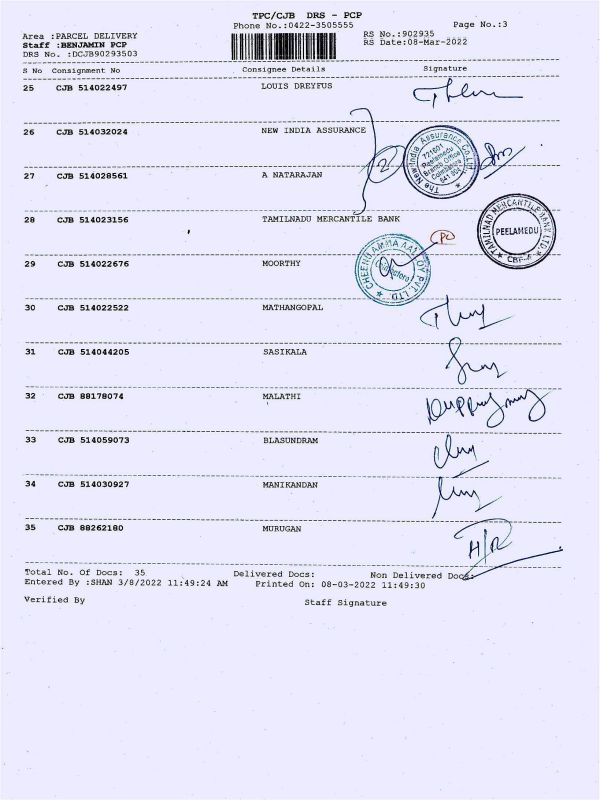 TPC/CJB DRS - PCP
Phone No.:0422-3505555
Page No.:3
Area :PARCEL DELIVERY
RS No.:902935
Staff :BENJAMIN PCP
RS Date:08-Mar-2022
DRS No. :DCJB90293503
S No Consignment No Consignee Details Signature
25 CJB 514022497 LOUIS DREYFUS
26 CJB 514032024 NEW INDIA ASSURANCE
The New India Assurance Co.Ltd.
721601
Peelamedu
Branch Office
Coimbatore
641 004
27 CJB 514028561 A NATARAJAN
28 CJB 514023156 TAMILNADU MERCANTILE BANK
TAMILNAD MERCANTILE BANK LTD.
PEELAMEDU
29 CJB 514022676 MOORTHY
30 CJB 514022522 MATHANGOPAL
31 CJB 514044205 SASIKALA
32 CJB 88178074 MALATHI
33 CJB 514059073 BLASUNDRAM
34 CJB 514030927 MANIKANDAN
35 CJB 88262180 MURUGAN
Total No. Of Docs: 35 Delivered Docs: Non Delivered Docs:
Entered By :SHAN 3/8/2022 11:49:24 AM Printed On: 08-03-2022 11:49:30
Verified By Staff Signature